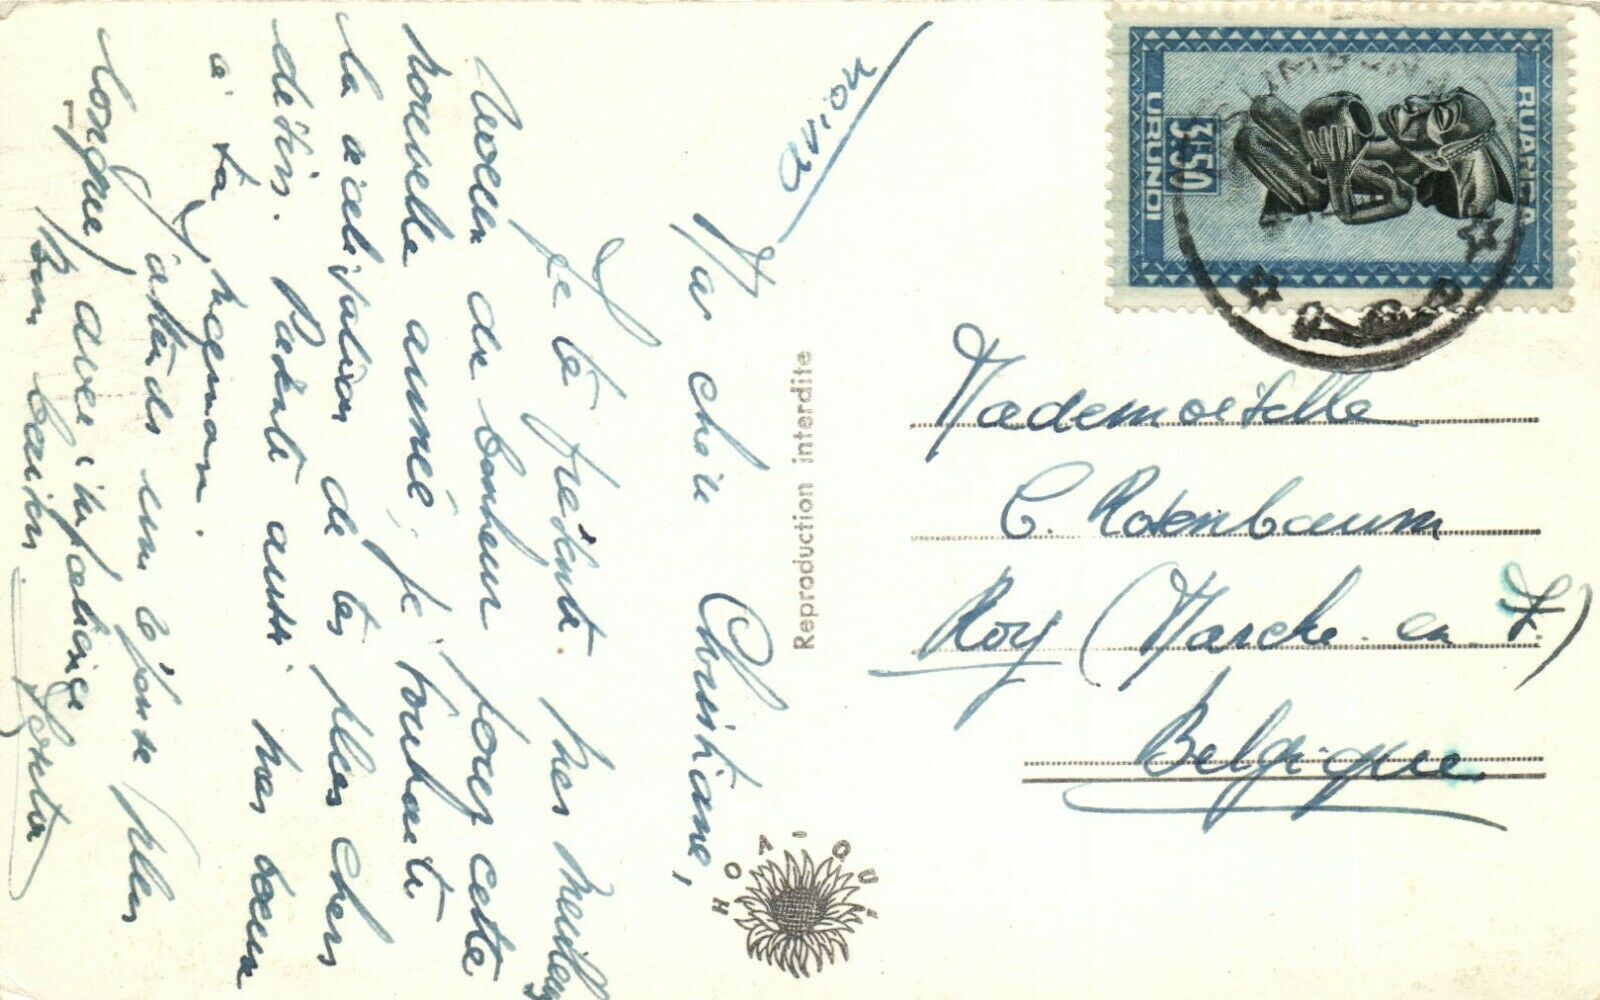 avion
Ma chère Christiane,
Je te présente mes meilleurs
vœux de bonheur pour cette
nouvelle année, je souhaite
la réalisation de tes plus chers
désirs. Présente aussi nos vœux
à ta maman.
J'attends une réponse plus
longue, avec impatience
Bons baisers.
Mademoiselle
C. Rosenbaum
Roy (Marche-en-F)
Belgique
RUANDA
URUNDI
3F50
Reproduction interdite
HOA-QUI